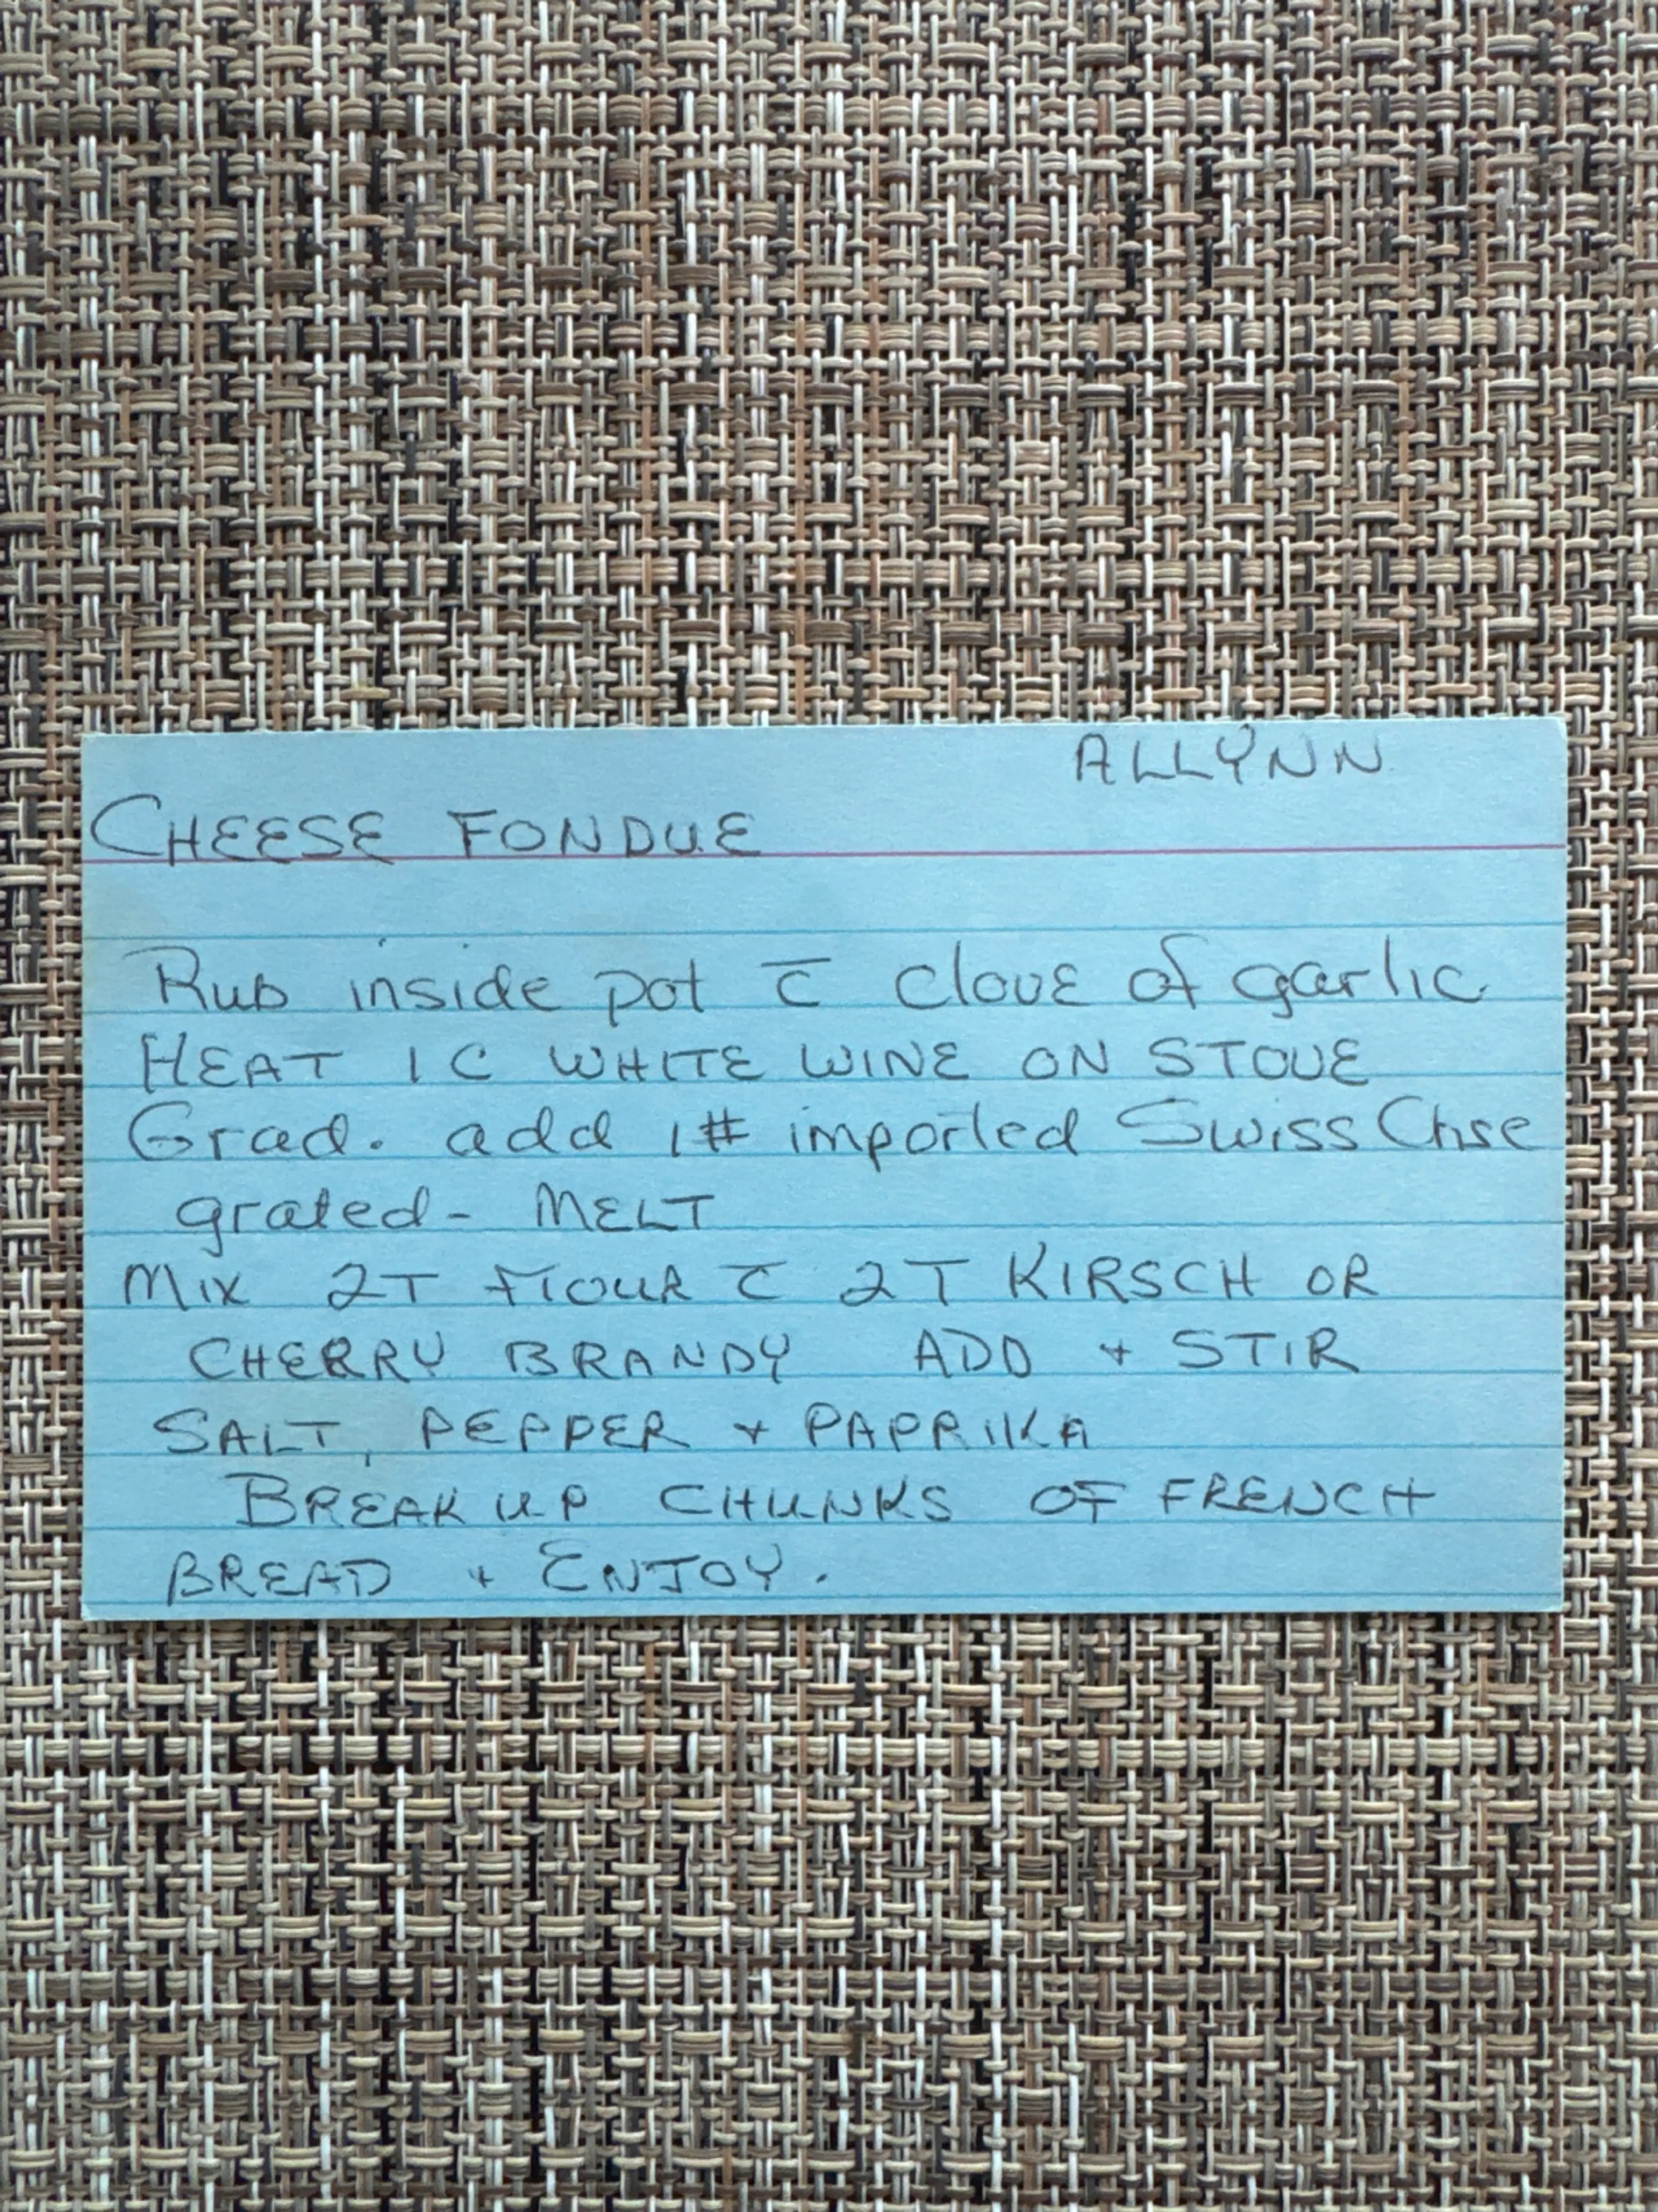 ALLYNN
CHEESE FONDUE
Rub inside pot c̄ clove of garlic
HEAT 1 C WHITE WINE ON STOVE
Grad. add 1# imported Swiss Chse
grated - MELT
Mix 2T flour c̄ 2T KIRSCH OR
CHERRY BRANDY ADD + STIR
SALT, PEPPER + PAPRIKA
BREAK UP CHUNKS OF FRENCH
BREAD + ENJOY.